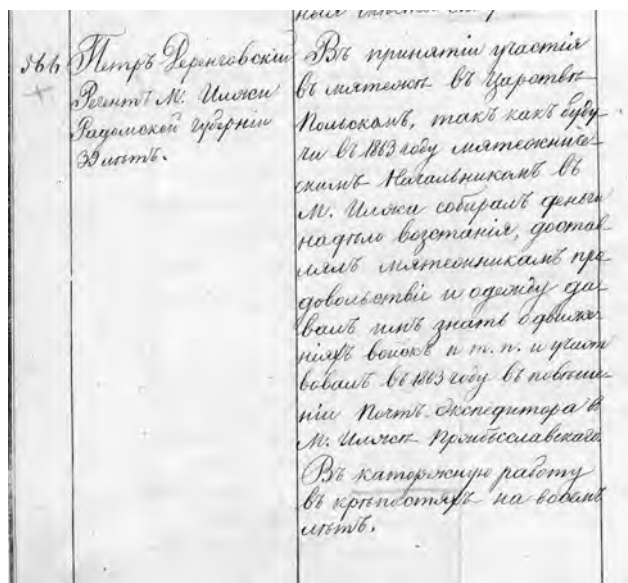 566
Петръ Деренговскій
Регентъ М. Илжи
Радомской губерніи
39 лѣтъ.
Въ принятіи участія
въ мятежѣ въ Царствѣ
Польскомъ, такъ какъ буду-
чи въ 1863 году мятежниче-
скимъ Начальникомъ въ
М. Илжи собиралъ деньги
на дѣло возстанія, достав-
лялъ мятежникамъ про
довольствіе и одежду да
валъ имъ знать о движе-
ніяхъ войскъ и т. п. и участ
вовалъ въ 1863 году въ повѣше-
ніи Почт. Экспедитора въ
М. Илжѣ
Въ каторжную работу
въ крѣпостяхъ на восемь
лѣтъ.